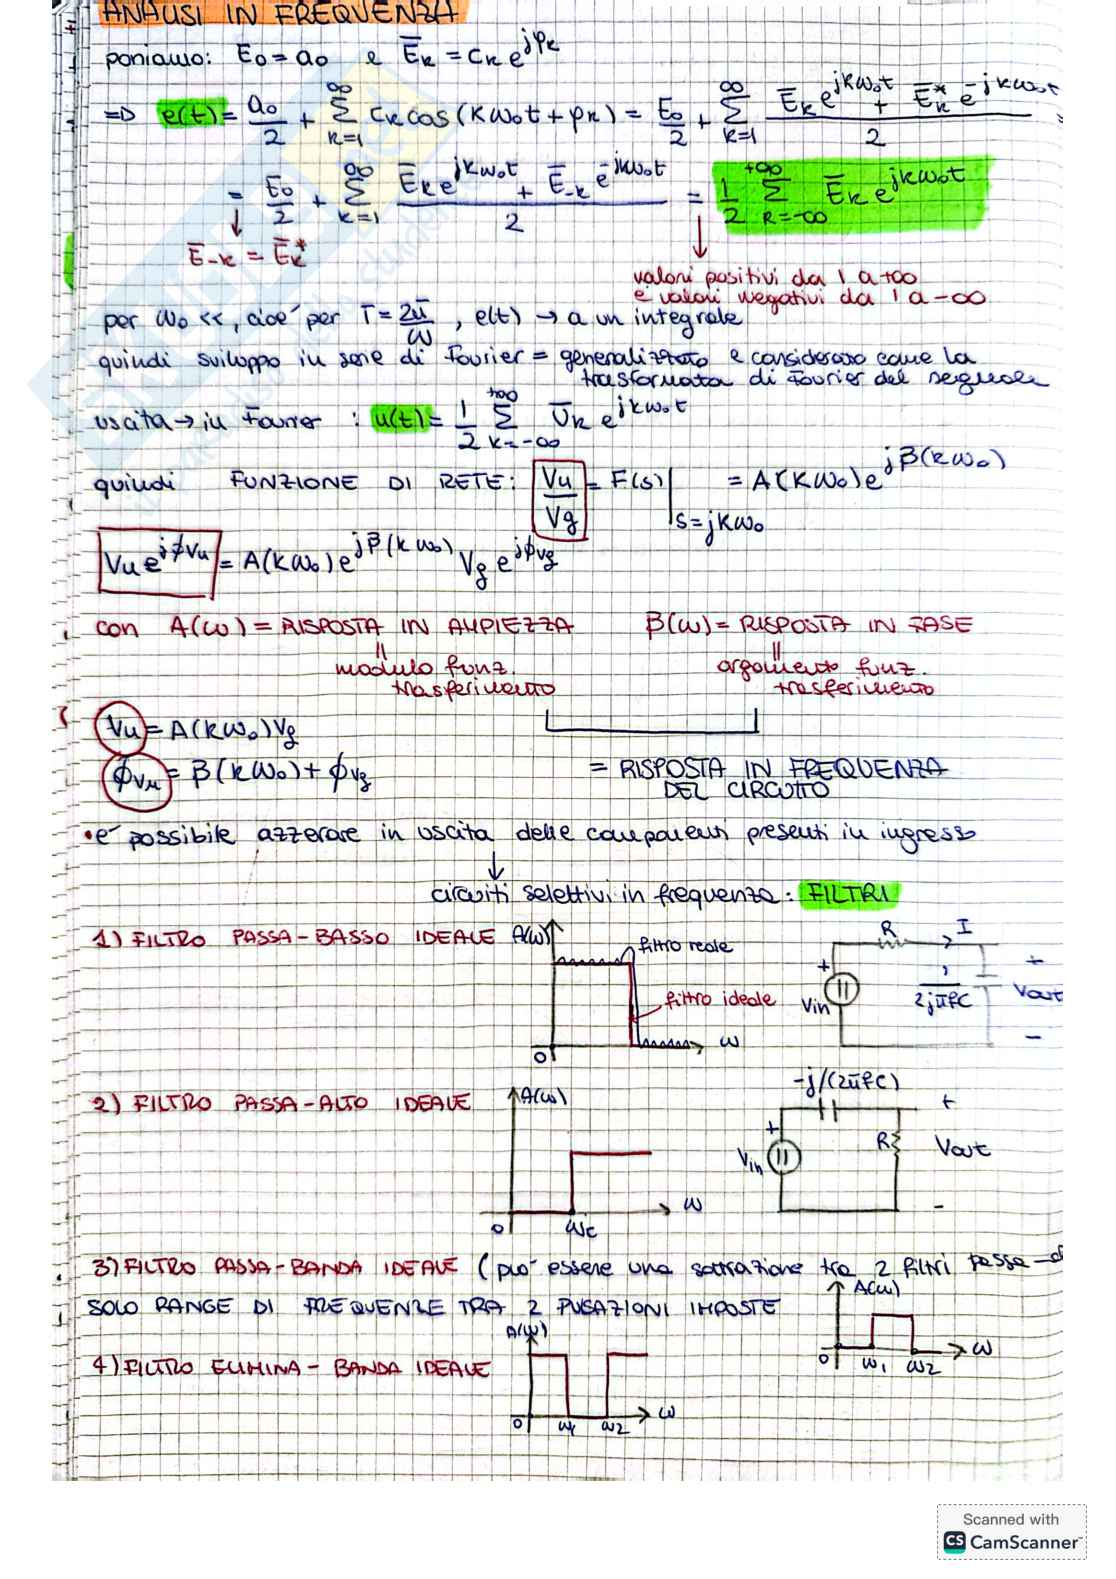 ANALISI IN FREQUENZA
poniamo: E₀ = a₀ e Ēₖ = cₖ e^{jφₖ}
=D e(t) = a₀/2 + Σ_{k=1}^{∞} cₖ cos(kω₀t + φₖ) = E₀/2 + Σ_{k=1}^{∞} (Ēₖ e^{jkω₀t} + Ēₖ* e^{-jkω₀t})/2
= E₀/2 + Σ_{k=1}^{∞} (Ēₖ e^{jkω₀t} + Ē₋ₖ e^{-jkω₀t})/2 = 1/2 Σ_{k=-∞}^{+∞} Ēₖ e^{jkω₀t}
Ē₋ₖ = Ēₖ*
valori positivi da 1 a +∞
e valori negativi da 1 a -∞
per ω₀ <<, cioè per T = 2π/ω, e(t) → a un integrale
quindi sviluppo in serie di Fourier = generalizzato e considerato come la
trasformata di Fourier del segnale
uscita → in Fourier : u(t) = 1/2 Σ_{k=-∞}^{+∞} Ūₖ e^{jkω₀t}
quindi FUNZIONE DI RETE: Vu/Vg = F(s)|_{s=jkω₀} = A(kω₀) e^{jβ(kω₀)}
Vu e^{jϕVu} = A(kω₀) e^{jβ(kω₀)} Vg e^{jϕVg}
con A(ω) = RISPOSTA IN AMPIEZZA β(ω) = RISPOSTA IN FASE
= modulo funz. trasferimento
= argomento funz. trasferimento
Vu = A(kω₀)Vg
ϕVu = β(kω₀) + ϕVg
= RISPOSTA IN FREQUENZA
DEL CIRCUITO
• e' possibile azzerare in uscita delle componenti presenti in ingresso
↓
circuiti selettivi in frequenza: FILTRI
1) FILTRO PASSA-BASSO IDEALE
A(ω)
filtro reale
filtro ideale
0
ω
R
I
+
Vin
1/2jπfC
+
Vout
-
2) FILTRO PASSA-ALTO IDEALE
A(ω)
0
ωc
ω
-j/(2πfC)
+
Vin
R
+
Vout
-
3) FILTRO PASSA-BANDA IDEALE (può essere una sottrazione tra 2 filtri passa-
SOLO RANGE DI FREQUENZE TRA 2 PULSAZIONI IMPOSTE
A(ω)
0
ω1
ω2
ω
4) FILTRO ELIMINA-BANDA IDEALE
A(ω)
0
ω1
ω2
ω
Scanned with
CS CamScanner